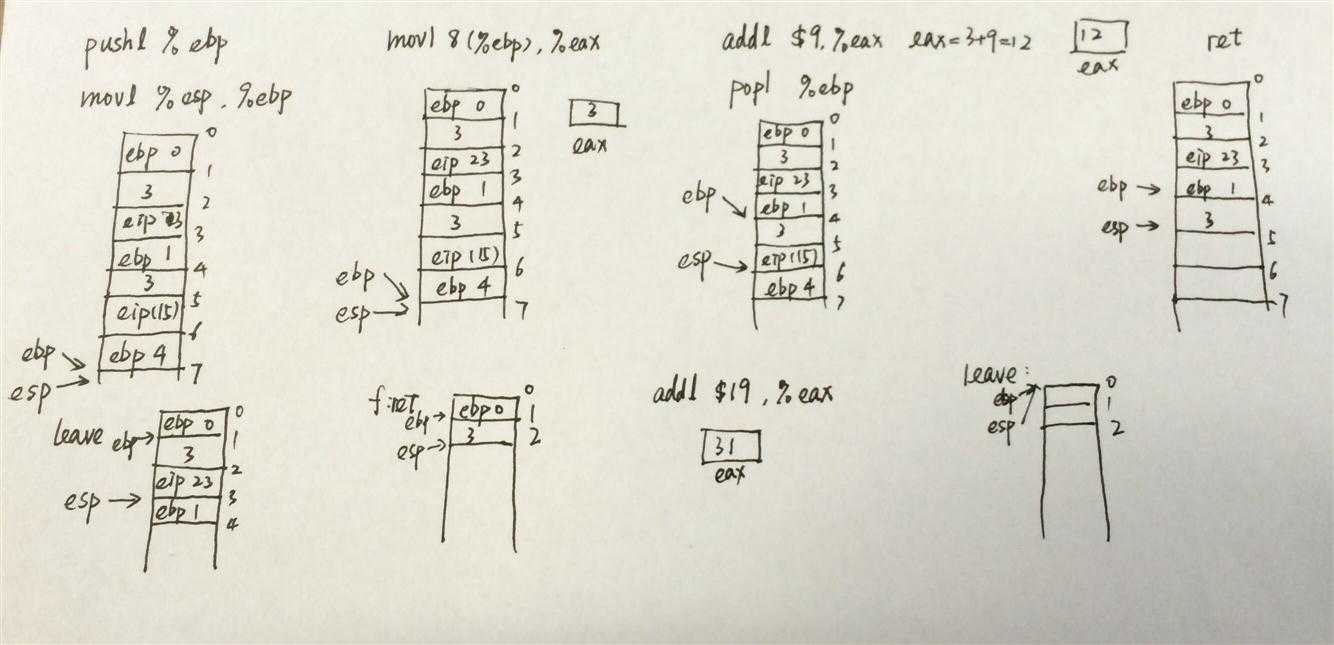 pushl %ebp
movl %esp, %ebp
0
ebp 0
1
3
2
eip 23
3
ebp 1
4
3
5
eip(15)
6
ebp 4
7
ebp
esp
movl 8(%ebp), %eax
0
ebp 0
1
3
2
eip 23
3
ebp 1
4
3
5
eip(15)
6
ebp 4
7
ebp
esp
3
eax
addl $9, %eax eax=3+9=12
12
eax
popl %ebp
0
ebp 0
1
3
2
eip 23
3
ebp 1
4
3
5
eip(15)
6
ebp 4
7
ebp
esp
ret
0
ebp 0
1
3
2
eip 23
3
ebp 1
4
3
5
6
7
ebp
esp
leave
0
ebp 0
1
3
2
eip 23
3
ebp 1
4
ebp
esp
f:ret
0
ebp 0
1
3
2
ebp
esp
addl $19, %eax
31
eax
leave:
0
1
2
ebp
esp